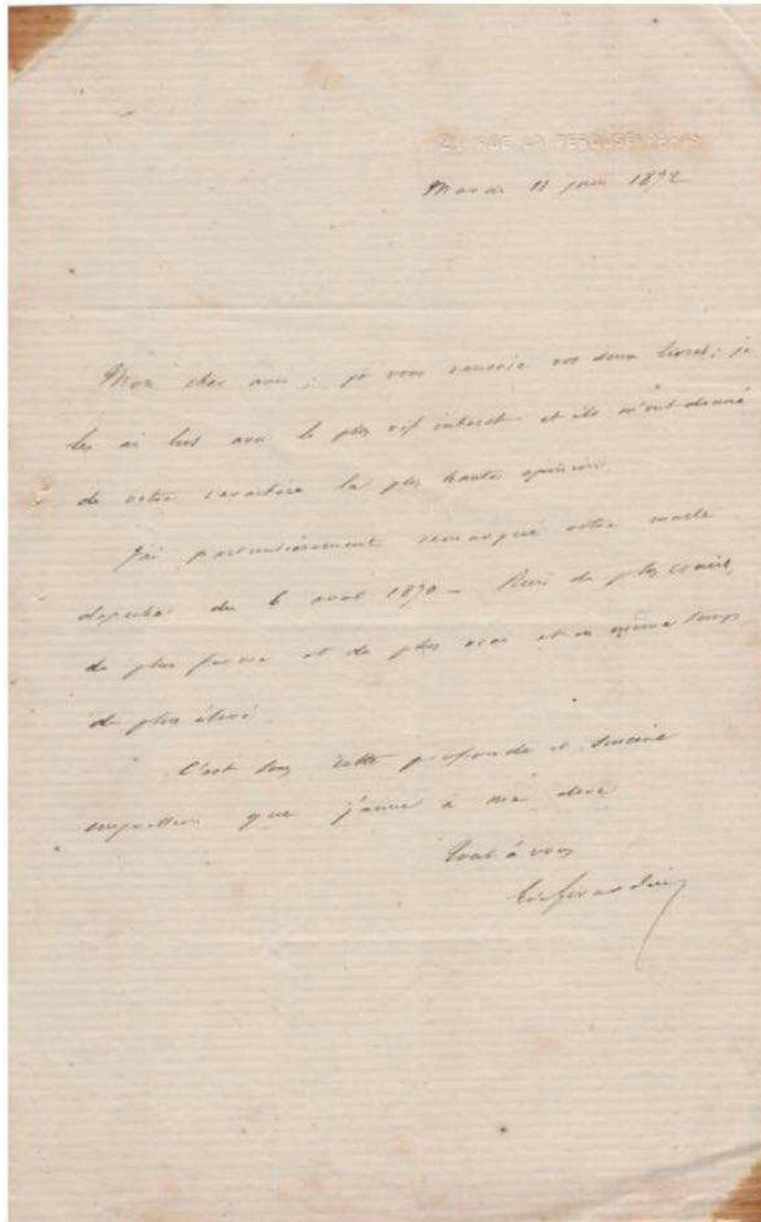 RUE LA PEROUSE PARIS
Mardi 11 juin 1872
Mon cher ami ; je vous renvoie vos deux livres ; je
les ai lus avec le plus vif interet et ils m'ont donné
de votre caractère la plus haute opinion
J'ai particulièrement remarqué votre
depeche du 6 avril 1870 — Rien de plus
de plus ferme et de plus vrai et en même temps
de plus élevé
C'est sous cette profonde et sincère
impression que j'aime à me dire
tout à vous